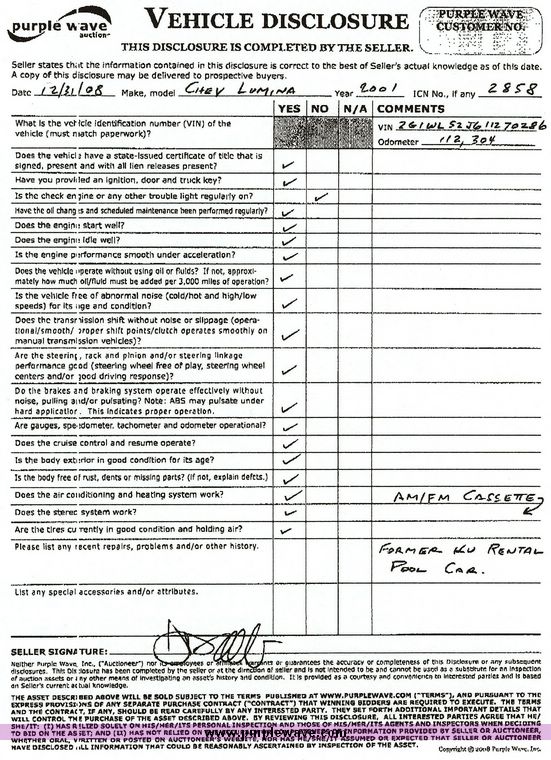 purple wave
auction
VEHICLE DISCLOSURE
PURPLE WAVE
CUSTOMER NO.
THIS DISCLOSURE IS COMPLETED BY THE SELLER.
Seller states that the information contained in this disclosure is correct to the best of Seller's actual knowledge as of this date.
A copy of this disclosure may be delivered to prospective buyers.
Date 12/31/08 Make, model CHEV LUMINA Year 2001 ICN No., if any 2858
YES NO N/A COMMENTS
What is the vehicle identification number (VIN) of the
vehicle (must match paperwork)?
VIN 2G1WL52J611270286
Odometer 112,304
Does the vehicle have a state-issued certificate of title that is
signed, present and with all lien releases present?
Have you provided an ignition, door and truck key?
Is the check engine or any other trouble light regularly on?
Have the oil changes and scheduled maintenance been performed regularly?
Does the engine start well?
Does the engine idle well?
Is the engine performance smooth under acceleration?
Does the vehicle operate without using oil or fluids? If not, approxi-
mately how much oil/fluid must be added per 3,000 miles of operation?
Is the vehicle free of abnormal noise (cold/hot and high/low
speeds) for its age and condition?
Does the transmission shift without noise or slippage (opera-
tional/smooth/proper shift points/clutch operates smoothly on
manual transmission vehicles)?
Are the steering, rack and pinion and/or steering linkage
performance good (steering wheel free of play, steering wheel
centers and/or good driving response)?
Do the brakes and braking system operate effectively without
noise, pulling and/or pulsating? Note: ABS may pulsate under
hard application. This indicates proper operation.
Are gauges, speedometer, tachometer and odometer operational?
Does the cruise control and resume operate?
Is the body exterior in good condition for its age?
Is the body free of rust, dents or missing parts? (If not, explain defcts.)
Does the air conditioning and heating system work?
AM/FM CASSETTE
Does the stereo system work?
Are the tires currently in good condition and holding air?
Please list any recent repairs, problems and/or other history.
FORMER KU RENTAL
POOL CAR.
List any special accessories and/or attributes.
SELLER SIGNATURE:
Neither Purple Wave, Inc., ("Auctioneer") nor its employees or affiliates warrants or guarantees the accuracy or completeness of this Disclosure or any subsequent
disclosures. This Disclosure has been completed by the seller or at the direction of seller and is not intended to be and cannot be used as a substitute for an inspection
of auction assets or any other means of investigating an asset's history and condition. It is provided as a courtesy and convenience to interested parties and is based
on Seller's current actual knowledge.
THE ASSET DESCRIBED ABOVE WILL BE SOLD SUBJECT TO THE TERMS PUBLISHED AT WWW.PURPLEWAVE.COM ("TERMS"), AND PURSUANT TO THE
EXPRESS PROVISIONS OF ANY SEPARATE PURCHASE CONTRACT ("CONTRACT") THAT WINNING BIDDERS ARE REQUIRED TO EXECUTE. THE TERMS
AND THE CONTRACT, IF ANY, SHOULD BE READ CAREFULLY BY ANY INTERESTED PARTY. THEY SET FORTH ADDITIONAL IMPORTANT DETAILS THAT
WILL CONTROL THE PURCHASE OF THE ASSET DESCRIBED ABOVE. BY REVIEWING THIS DISCLOSURE, ALL INTERESTED PARTIES AGREE THAT HE/
SHE/IT: (I) HAS RELIED SOLELY ON HIS/HER/ITS PERSONAL INSPECTION AND THOSE OF HIS/HER/ITS AGENTS AND INSPECTORS WHEN DECIDING
TO BID ON THE ASSET; AND (II) HAS NOT RELIED ON INFORMATION PROVIDED BY SELLER OR AUCTIONEER,
WHETHER ORAL, WRITTEN OR POSTED ON AUCTIONEER'S WEBSITE, NOR HAS HE/SHE/IT ASSUMED OR EXPECTED THAT SELLER OR AUCTIONEER
HAVE DISCLOSED ALL INFORMATION THAT COULD BE REASONABLY ASCERTAINED BY INSPECTION OF THE ASSET.
www.purplewave.com
Copyright © 2008 Purple Wave, Inc.